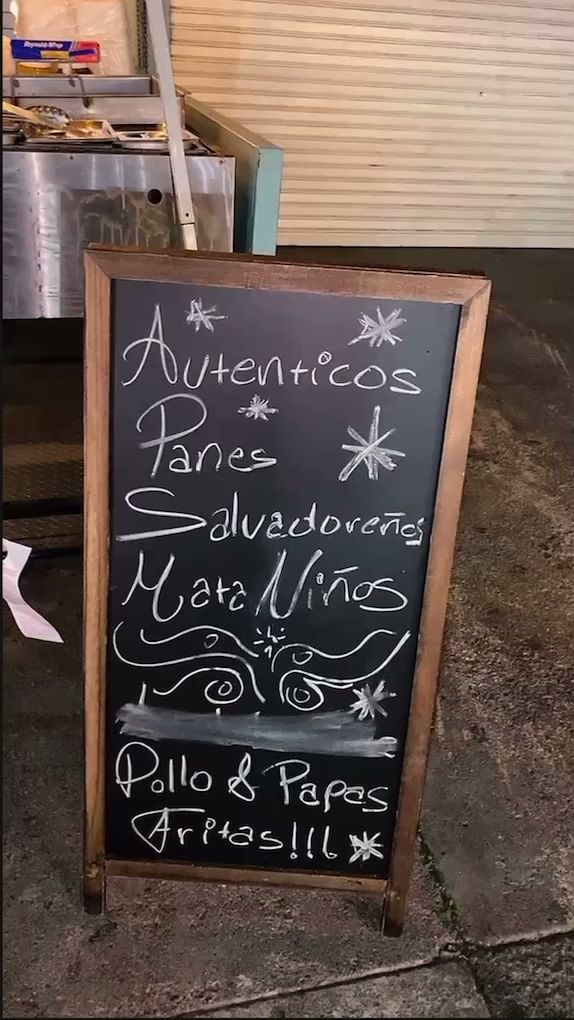 Reynolds Wrap
Autenticos
Panes
Salvadoreños
Mata Niños
Pollo & Papas
Fritas!!!